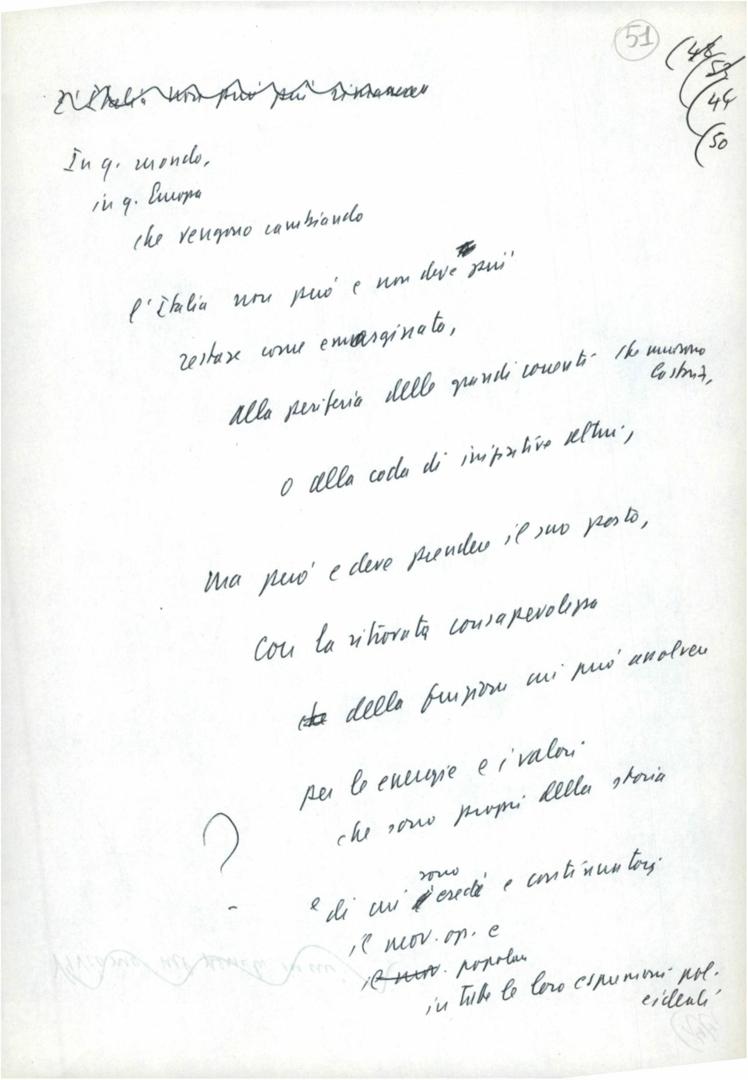 51
(46
(52
(44
(50
L'Italia non può più rimanere
In q. mondo,
in q. Europa
che vengono cambiando
l'Italia non può e non deve più
restare come emarginata,
alla periferia delle grandi correnti che muovono
la storia,
o alla coda di iniziative altrui,
ma può e deve prendere il suo posto,
con la ritrovata consapevolezza
che della funzione cui può assolvere
per le energie e i valori
che sono propri della storia
?
e di cui sono eredi e continuatori
il mov. op. e
il mov. popolari
in tutte le loro espressioni pol.
e ideali